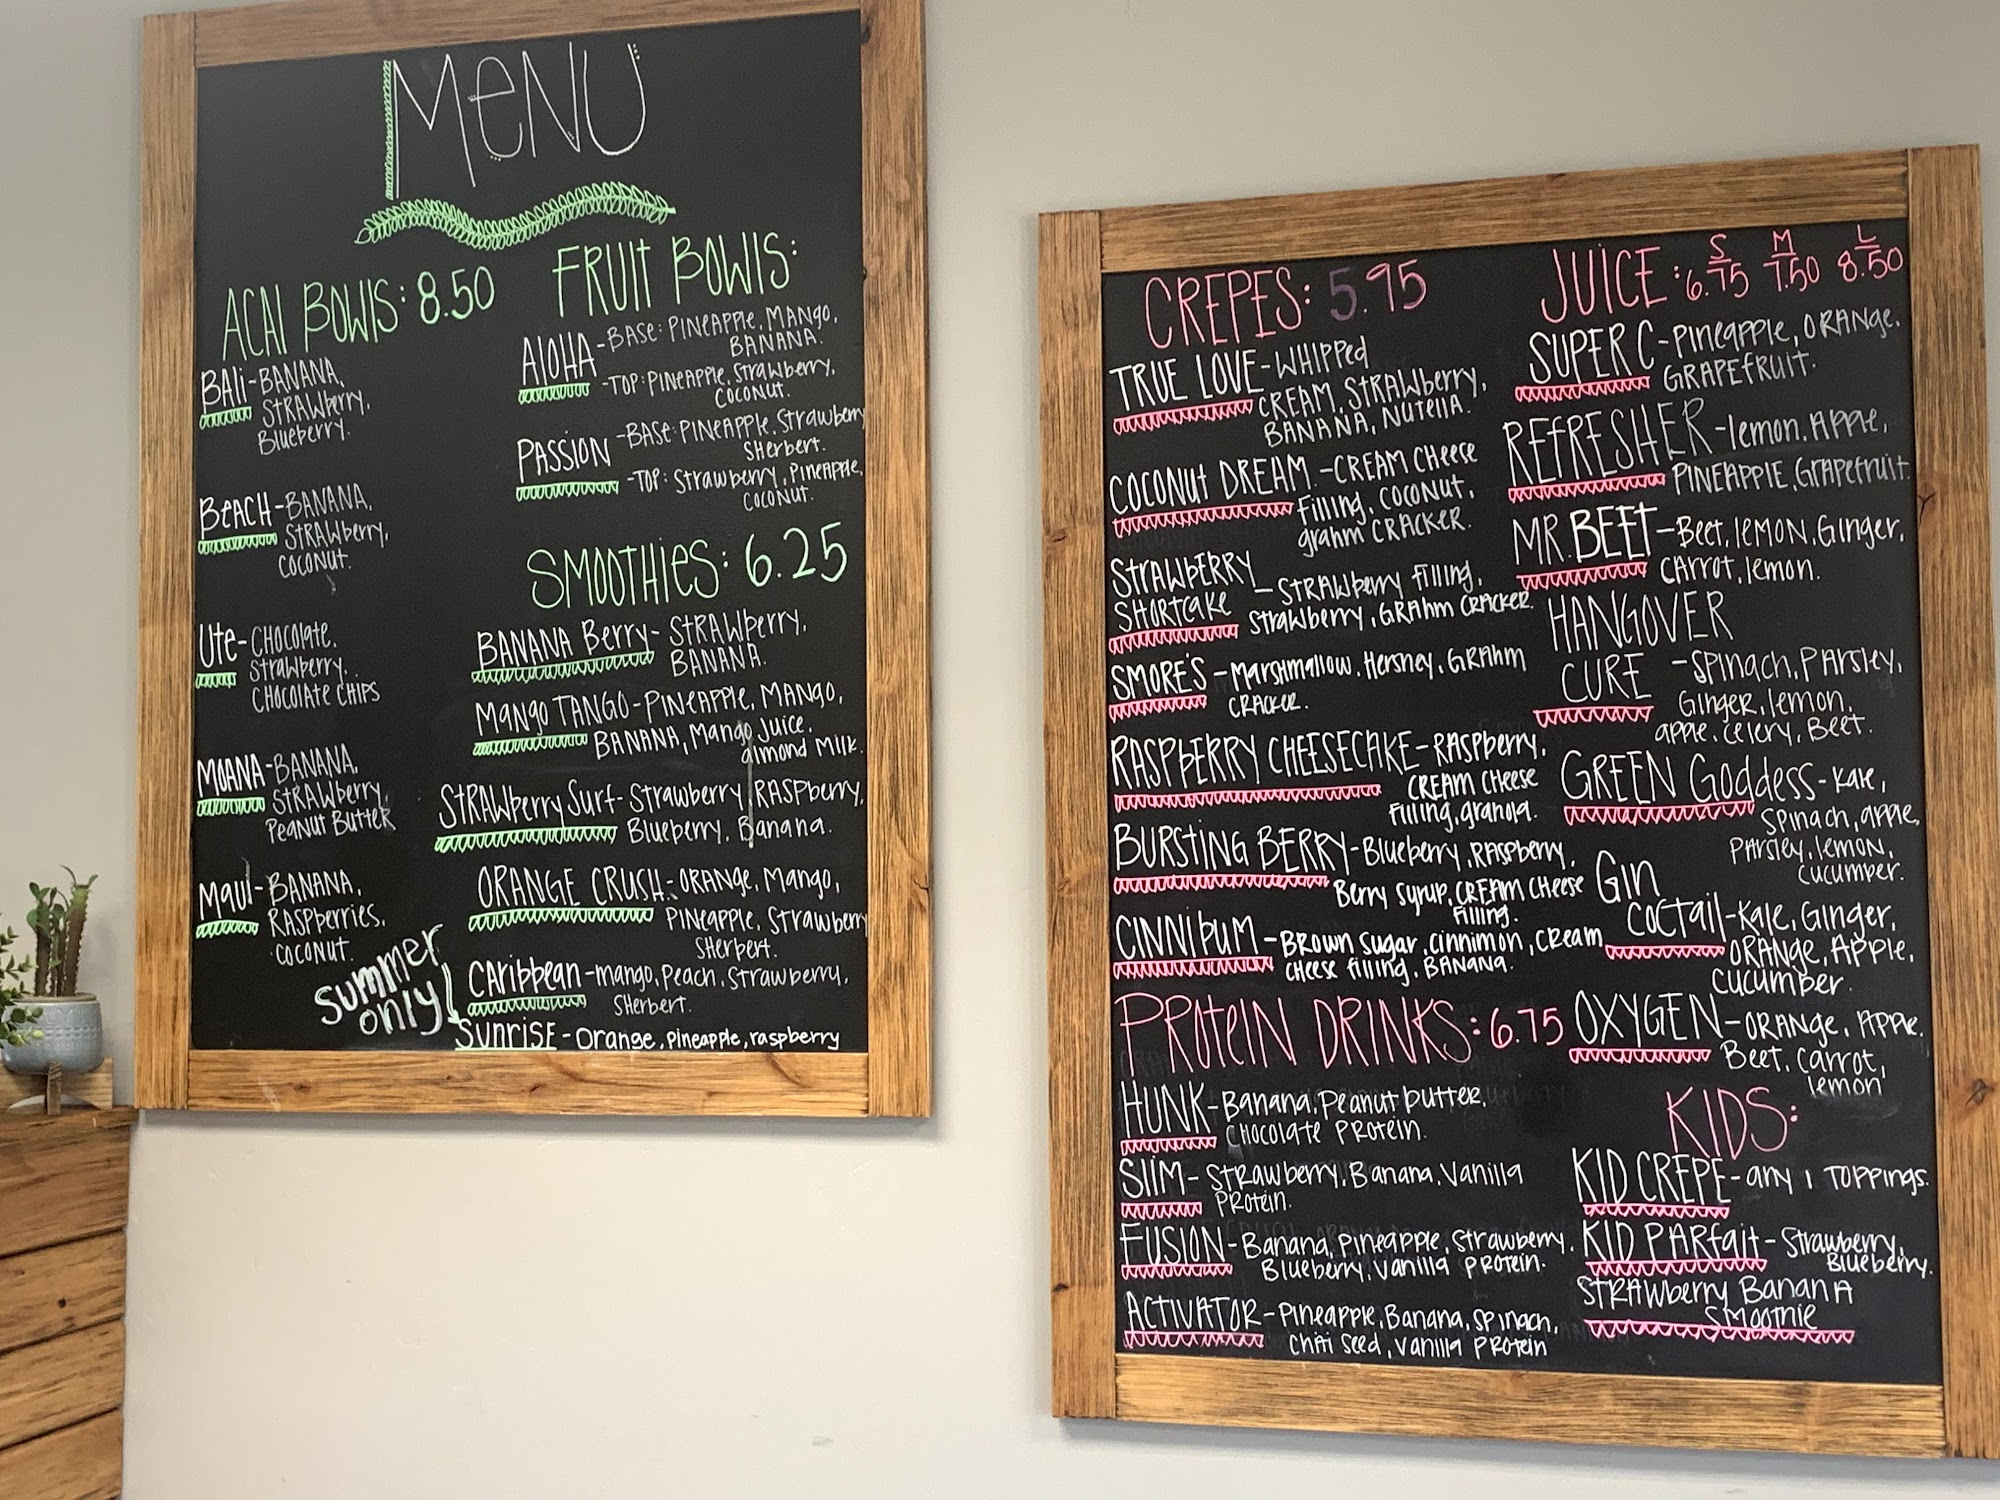 MENU
ACAI BOWLS: 8.50
BALI-BANANA,
STRAWberry,
Blueberry.
BEACH-BANANA,
STRAWberry,
COCONUT.
Ute-CHOCOlate.
Strawberry.
CHOCOLATE CHIPS
MOANA-BANANA,
STRAWberry,
PEANUT BUTTER
MAUI-BANANA,
RASPberries,
COCONUT.
FRUIT BOWLS:
ALOHA-BASE: PINEAPPLE, MANGO,
BANANA.
-TOP: PINEAPPLE, Strawberry,
COCONUT.
PASSION-BASE: PINEAPPLE, Strawberry
SHerbert.
-TOP: Strawberry, Pineapple,
COCONUT.
SMOOTHIES: 6.25
BANANA Berry-STRAWberry,
BANANA.
MANGO TANGO-PINEAPPLE, MANGO,
BANANA, MANGO JUICE,
almond Milk.
STRAWberry Surf-Strawberry, RASPberry,
Blueberry, Banana.
ORANGE CRUSH-ORANGE, Mango,
PINEAPPLE, Strawberry
SHerbert.
summer
only
CARIbbean-mango, Peach, Strawberry,
SHerbert.
SUNRISE-Orange, pineapple, raspberry
CREPES: 5.95
TRUE LOVE-WHIPPed
CREAM, STRAWberry,
BANANA, NUTELLA.
COCONUT DREAM-CREAM CHeese
Filling, COCONUT,
grahm CRACKER.
STRAWBERRY
SHORTCAKE-STRAWberry Filling,
Strawberry, GRAhm CRACKER.
SMORE'S-Marshmallow, Hershey, GRAhm
CRACKER.
RASPBERRY CHEESECAKE-RASPberry,
CREAM CHeese
Filling, granola.
BURSTING BERRY-Blueberry, RASPberry,
Berry Syrup, CREAM CHeese
Filling.
CINNIBUM-BROWN SUGAR, cinnimon, CREAM
CHeese filling, BANANA.
PROTEIN DRINKS: 6.75
HUNK-Banana, Peanut butter,
CHOCOlate PROTEIN.
SLIM-Strawberry, Banana, Vanilla
PROtein.
FUSION-Banana, Pineapple, Strawberry,
Blueberry, Vanilla PROtein.
ACTIVATOR-Pineapple, Banana, Spinach,
CHAI Seed, Vanilla PROtein
S M L
JUICE: 6.75 7.50 8.50
SUPER C-PINeapple, ORANGE.
GRAPEFRUIT.
REFRESHER-lemon, Apple,
PINEAPPLE, GRAPEfruit.
MR. BEET-Beet, lemon, Ginger,
CARROT, lemon.
HANGOVER
CURE-SPINACH, PARSley,
Ginger, lemon,
apple, celery, Beet.
GREEN Goddess-Kale,
Spinach, apple,
PARSley, lemon,
cucumber.
GIN
COCTail-Kale, Ginger,
ORANGE, APPLE,
cucumber.
OXYGEN-ORANGE, APPLE,
Beet, CARROT,
lemon
KIDS:
KID CREPE-any 1 TOPPINGS.
KID PARfait-Strawberry,
Blueberry.
STRAWberry BANANA
SMOOTHIE